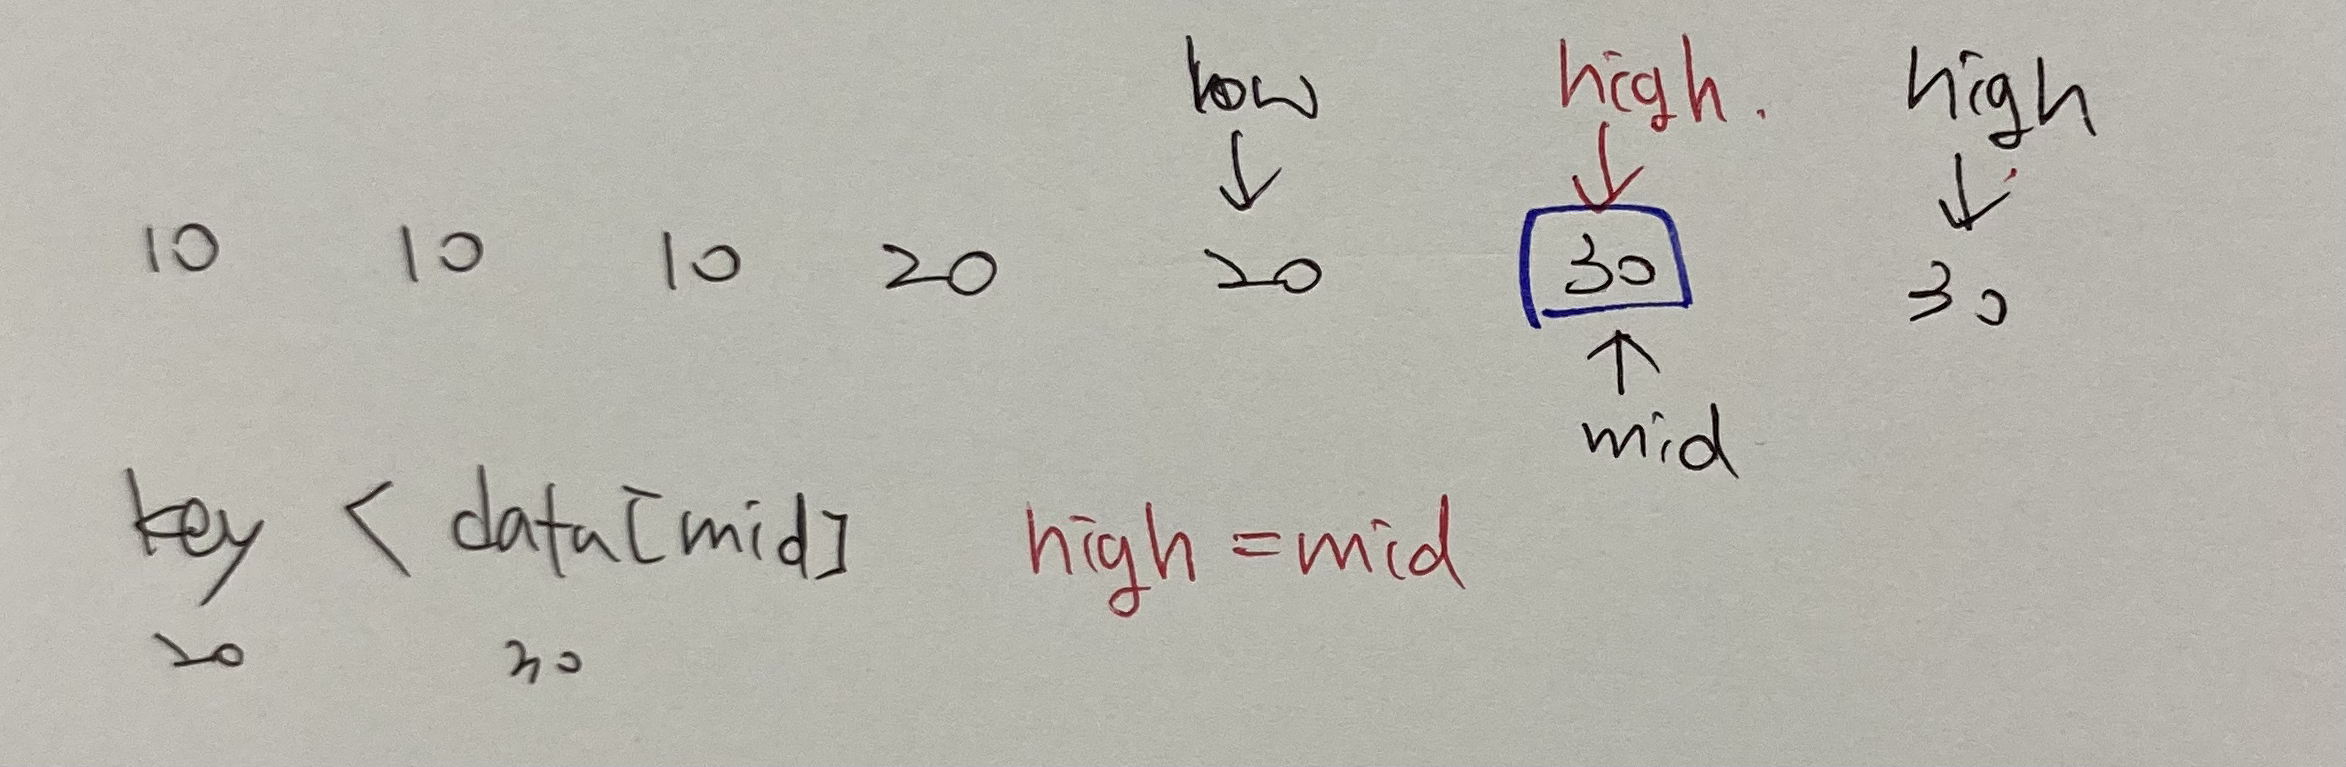 low high. high
10 10 10 20 20 30 30
mid
key < data[mid] high = mid
20 30